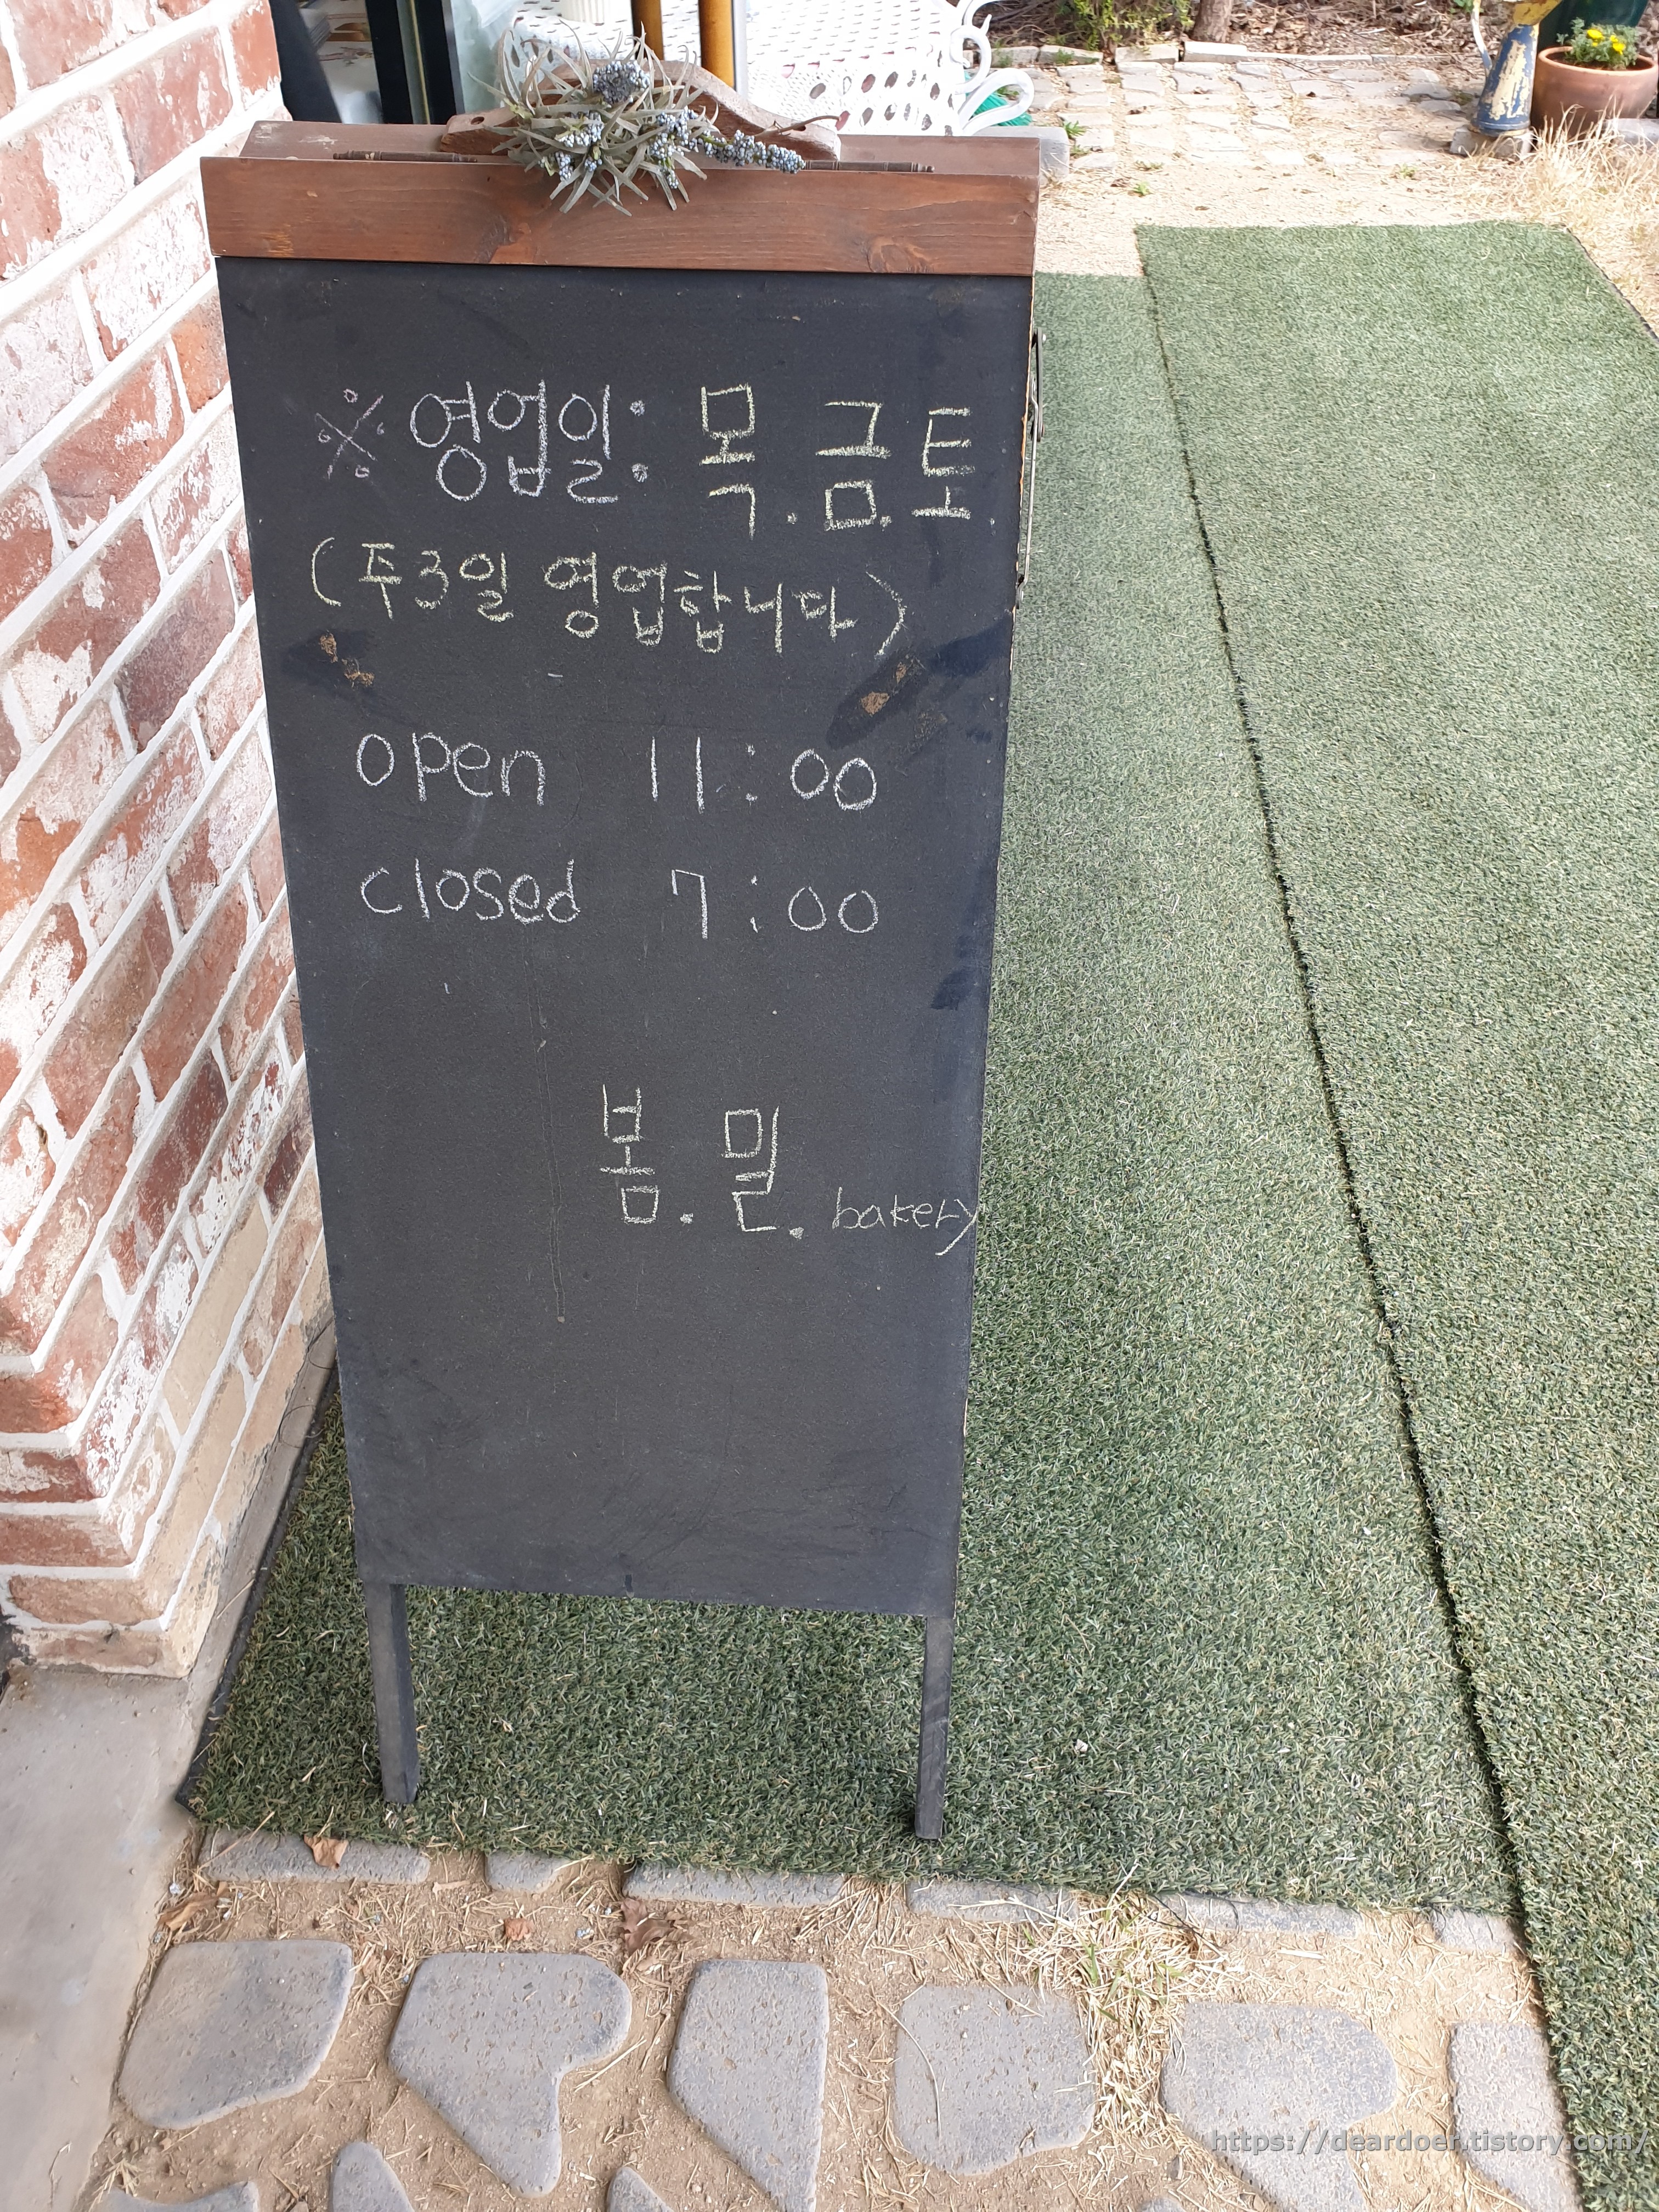 ※영업일: 목. 금. 토.
(주3일 영업합니다)
open 11:00
closed 7:00
봄. 밀. bakery
https://deardoer.tistory.com/